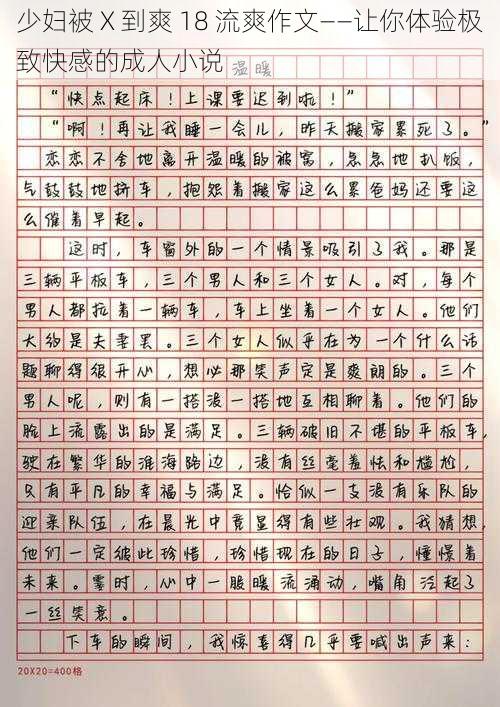 少妇被 X 到爽 18 流爽作文——让你体验极
致快感的成人小说
温暖
“快点起床！上课要迟到啦！”
“啊！再让我睡一会儿，昨天搬家累死了。”
恋恋不舍地离开温暖的被窝，急急地扒饭，
气鼓鼓地挤车，抱怨着搬家这么累爸妈还要这
么催着早起。
这时，车窗外的一个情景吸引了我。那是
三辆平板车，三个男人和三个女人。对，每个
男人都拉着一辆车，车上坐着一个女人。他们
大约是夫妻罢。三个女人似乎在为一个什么话
题聊得很开心，想必那笑声定是爽朗的。三个
男人呢，则有一搭没一搭地互相聊着。他们的
脸上流露出的是满足。三辆破旧不堪的平板车，
驶在繁华的淮海路边，没有丝毫羞怯和尴尬，
只有平凡的幸福与满足。恰似一支没有乐队的
迎亲队伍，在晨光中竟显得有些壮观。我猜想，
他们一定彼此珍惜，珍惜现在的日子，憧憬着
未来。霎时，心中一股暖流涌动，嘴角泛起了
一丝笑意。
下车的瞬间，我惊喜得几乎要喊出声来：
20X20=400格